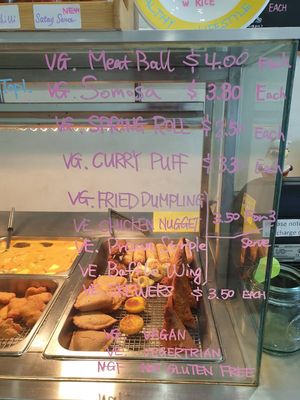 W RICE
EACH
NEW
Satay Sauce
VG. Meat Ball $4.00 Each
VG. Somosa $3.80 Each
VG. SPRING ROLL $ Each
VG. CURRY PUFF $ Each
VG. FRIED DUMPLING
VE. CHICKEN NUGGET 3.50 For 3
VE. Serve
VE. Wing
VE. SKEWERS $3.50 EACH
VG: VEGAN
VE: VEGERTRIAN
NGF: NOT GLUTEN FREE